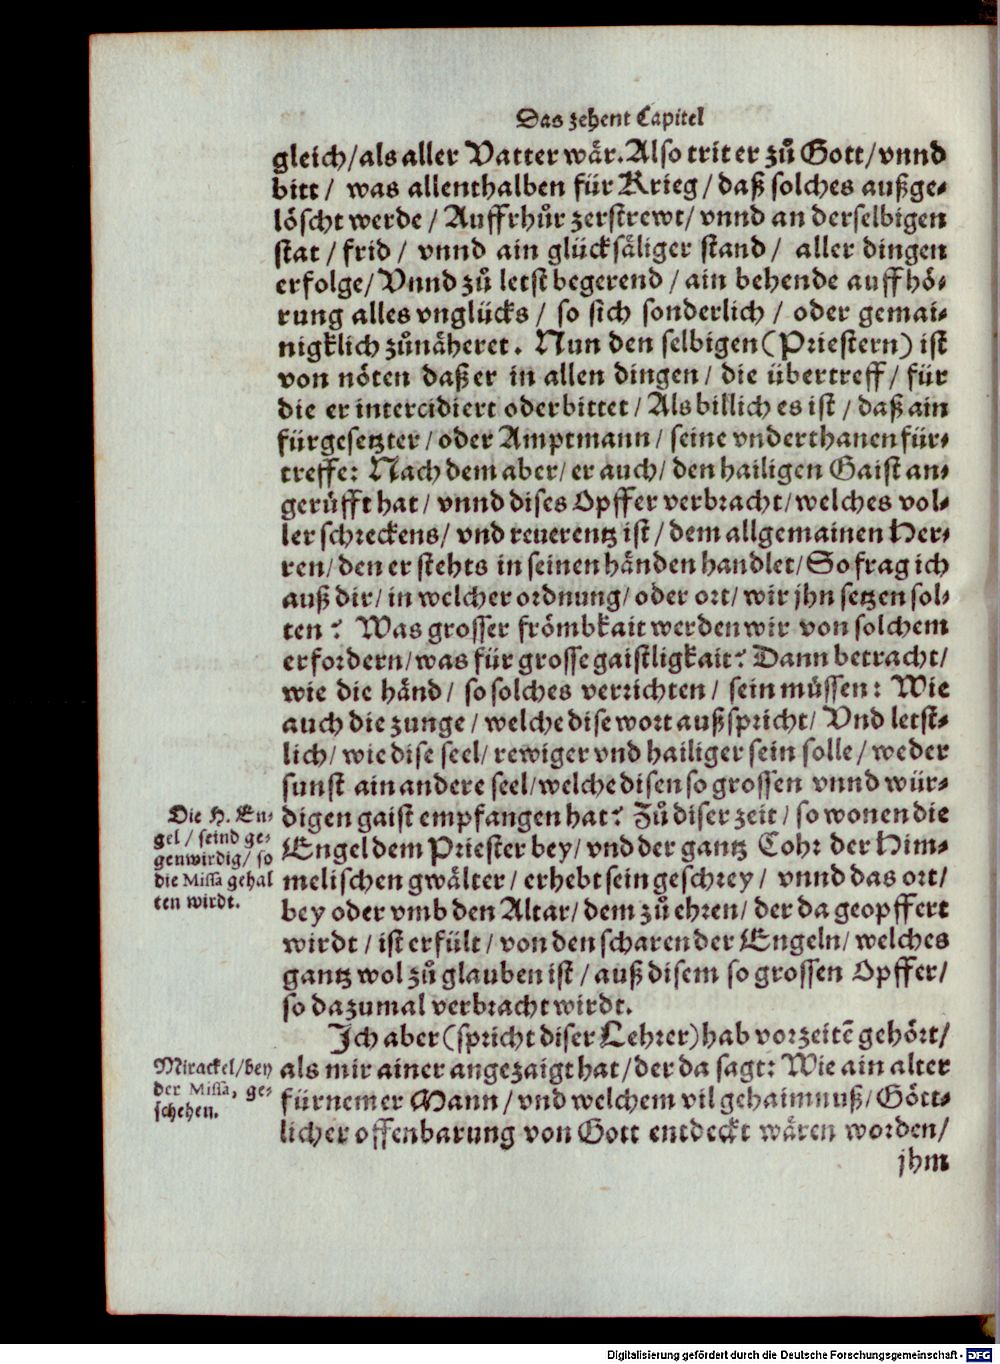 Das zehent Capitel
gleich/als aller Vatter wär. Also trit er zů Gott/vnnd
bitt/ was allenthalben für Krieg/daß solches außge-
löscht werde/ Auffrhůr zerstrewt/ vnnd an derselbigen
stat/frid/ vnnd ain glücksäliger stand/ aller dingen
erfolge/Vnnd zů letst begerend/ain behende auffhö-
rung alles vnglücks/ so sich sonderlich/ oder gemai-
nigklich zůnäheret. Nun den selbigen(Priestern) ist
von nöten daß er in allen dingen/ die übertreff/ für
die er intercidiert oder bittet/Als billich es ist/daß ain
fürgesetzter/oder Amptmann/seine vnderthanen für-
treffe: Nach dem aber/er auch/den hailigen Gaist an-
gerüfft hat/ vnnd dises Opffer verbracht/welches vol-
ler schreckens/ vnd reuerentz ist/dem allgemainen Her-
ren/den er stehts in seinen händen handlet/So frag ich
auß dir/in welcher ordnung/oder ort/wir jhn setzen sol-
ten? Was grosser frömbkait werden wir von solchem
erfordern/was für grosse gaistligkait? Dann betracht/
wie die händ/ so solches verrichten/ sein müssen: Wie
auch die zunge/welche dise wort außspricht/ Vnd letst-
lich/wie dise seel/rewiger vnd hailiger sein solle/weder
sunst ain andere seel/welche disen so grossen vnnd wür-
digen gaist empfangen hat? Zů diser zeit/so wonen die
Engel dem Priester bey/vnd der gantz Cohr der Him-
melischen gwälter/erhebt sein geschrey/ vnnd das ort/
bey oder vmb den Altar/dem zů ehren/der da geopffert
wirdt/ist erfült/von den scharen der Engeln/welches
gantz wol zů glauben ist/auß disem so grossen Opffer/
so dazumal verbracht wirdt.
Die H. En-
gel/seind ge-
genwirdig/so
die Missa gehal
ten wirdt.
Ich aber(spricht diser Lehrer)hab vorzeitẽ gehört/
als mir ainer angezaigt hat/der da sagt: Wie ain alter
fürnemer Mann/vnd welchem vil gehaimnuß/Gött-
licher offenbarung von Gott entdeckt wären worden/
Mirackel/bey
der Missa, ge-
schehen.
jhm
Digitalisierung gefördert durch die Deutsche Forschungsgemeinschaft - DFG